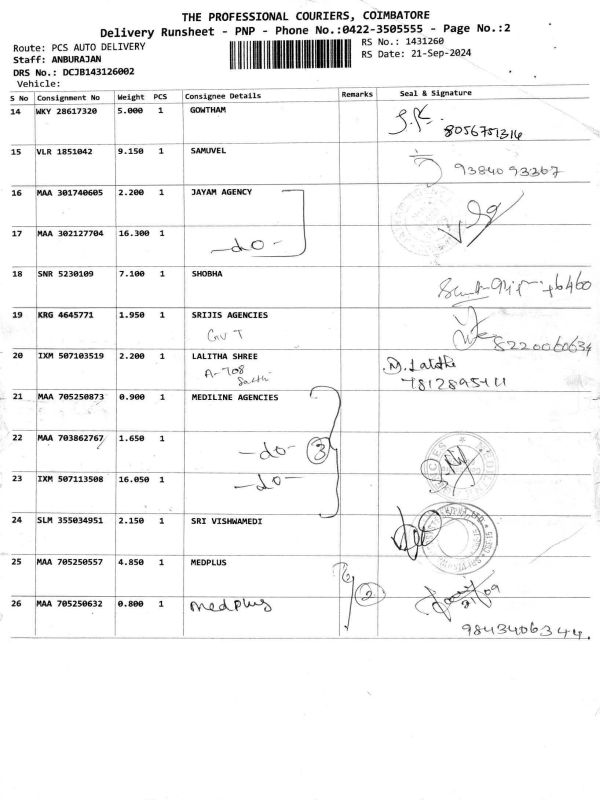 THE PROFESSIONAL COURIERS, COIMBATORE
Delivery Runsheet - PNP - Phone No.:0422-3505555 - Page No.:2
Route: PCS AUTO DELIVERY
RS No.: 1431260
Staff: ANBURAJAN
RS Date: 21-Sep-2024
DRS No.: DCJB143126002
Vehicle:
S No Consignment No Weight PCS Consignee Details Remarks Seal & Signature
14 WKY 28617320 5.000 1 GOWTHAM
8056751314
15 VLR 1851042 9.150 1 SAMUVEL
9384093367
16 MAA 301740605 2.200 1 JAYAM AGENCY
17 MAA 302127704 16.300 1
-do-
18 SNR 5230109 7.100 1 SHOBHA
19 KRG 4645771 1.950 1 SRIJIS AGENCIES
GVT
8220060634
20 IXM 507103519 2.200 1 LALITHA SHREE
A-708
7812895411
21 MAA 705250873 0.900 1 MEDILINE AGENCIES
22 MAA 703862767 1.650 1
-do- 3
23 IXM 507113508 16.050 1
-do-
24 SLM 355034951 2.150 1 SRI VISHWAMEDI
25 MAA 705250557 4.850 1 MEDPLUS
2
26 MAA 705250632 0.800 1 medplus
21/09
9843406344.